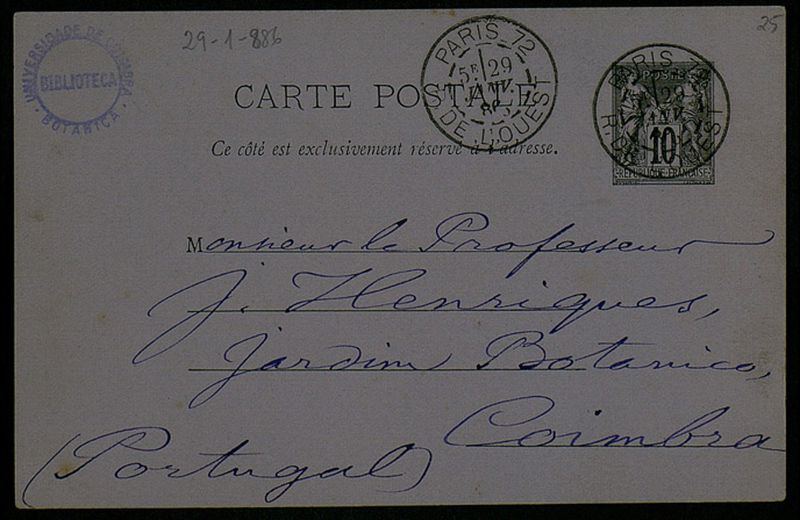 UNIVERSIDADE DE COIMBRA
BIBLIOTECA
BOTANICA
29-1-886
25
PARIS 72
5E 29
JANV.
R. DE L'OUEST
PARIS 72
29
JANV.
R. DE L'OUEST
POSTES
10
REPUBLIQUE FRANÇAISE
CARTE POSTALE
Ce côté est exclusivement réservé à l'adresse.
Monsieur le Professeur
J. Henriques,
Jardim Botanico,
Coimbra
(Portugal)